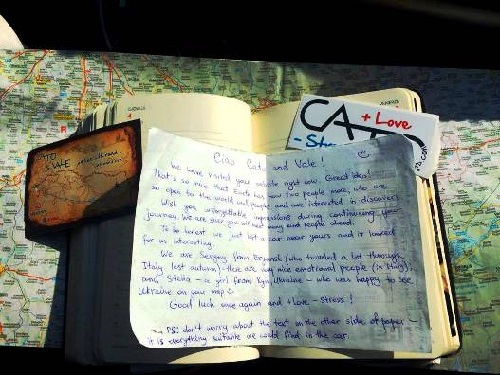 CATO
VALE
CATO
+ Love
Ciao Cato and Vale!
We have visited your website right now. Great idea!
That's so nice that Earth has now two people more, who are
so open for the world and people and are interested in discovery
Wish you unforgettable impressions during continuing your
journey. We are sure you will meet many kind people ahead.
To be honest we just let a car near yours and it looked
for us interesting.
We are Sergey from (who travelled a lot through
Italy last autumn) - there are very nice emotional people (in Italy),
and Stella - a girl from Kyiv, Ukraine - who was happy to see
Ukraine on your map
Good luck once again and +Love -Stress!
PS: don't worry about the text on the other side of paper -
it is everything suitable we could find in the car.